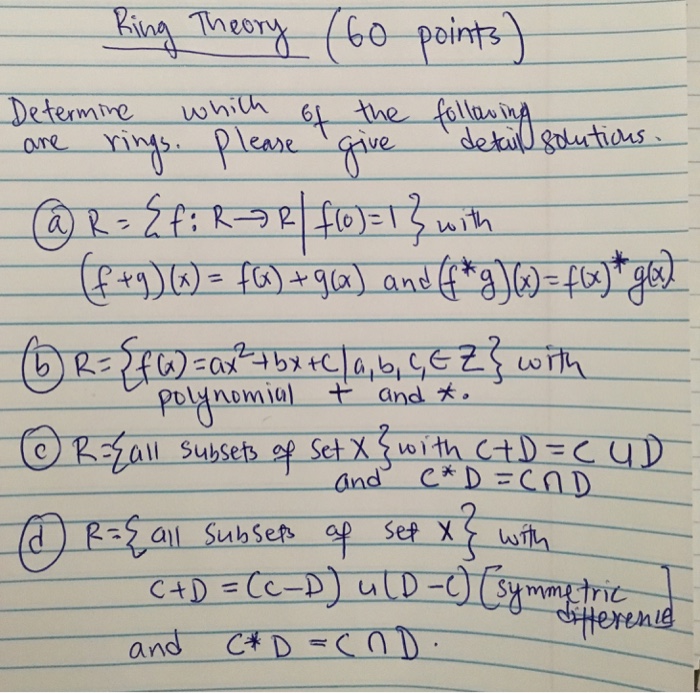 Ring Theory (60 points)
Determine which of the following
are rings. Please give detail solutions.
(a) R = {f: R→R | f(0)=1} with
(f+g)(x) = f(x)+g(x) and (f*g)(x)=f(x)*g(x)
(b) R= {f(x)=ax²+bx+c | a,b,c,∈ Z} with
polynomial + and *.
(c) R={all subsets of set X} with C+D = C ∪ D
and C*D = C∩D
(d) R={ all subsets of set X} with
C+D = (C-D) ∪ (D-C) [symmetric
difference]
and C*D = C∩D.